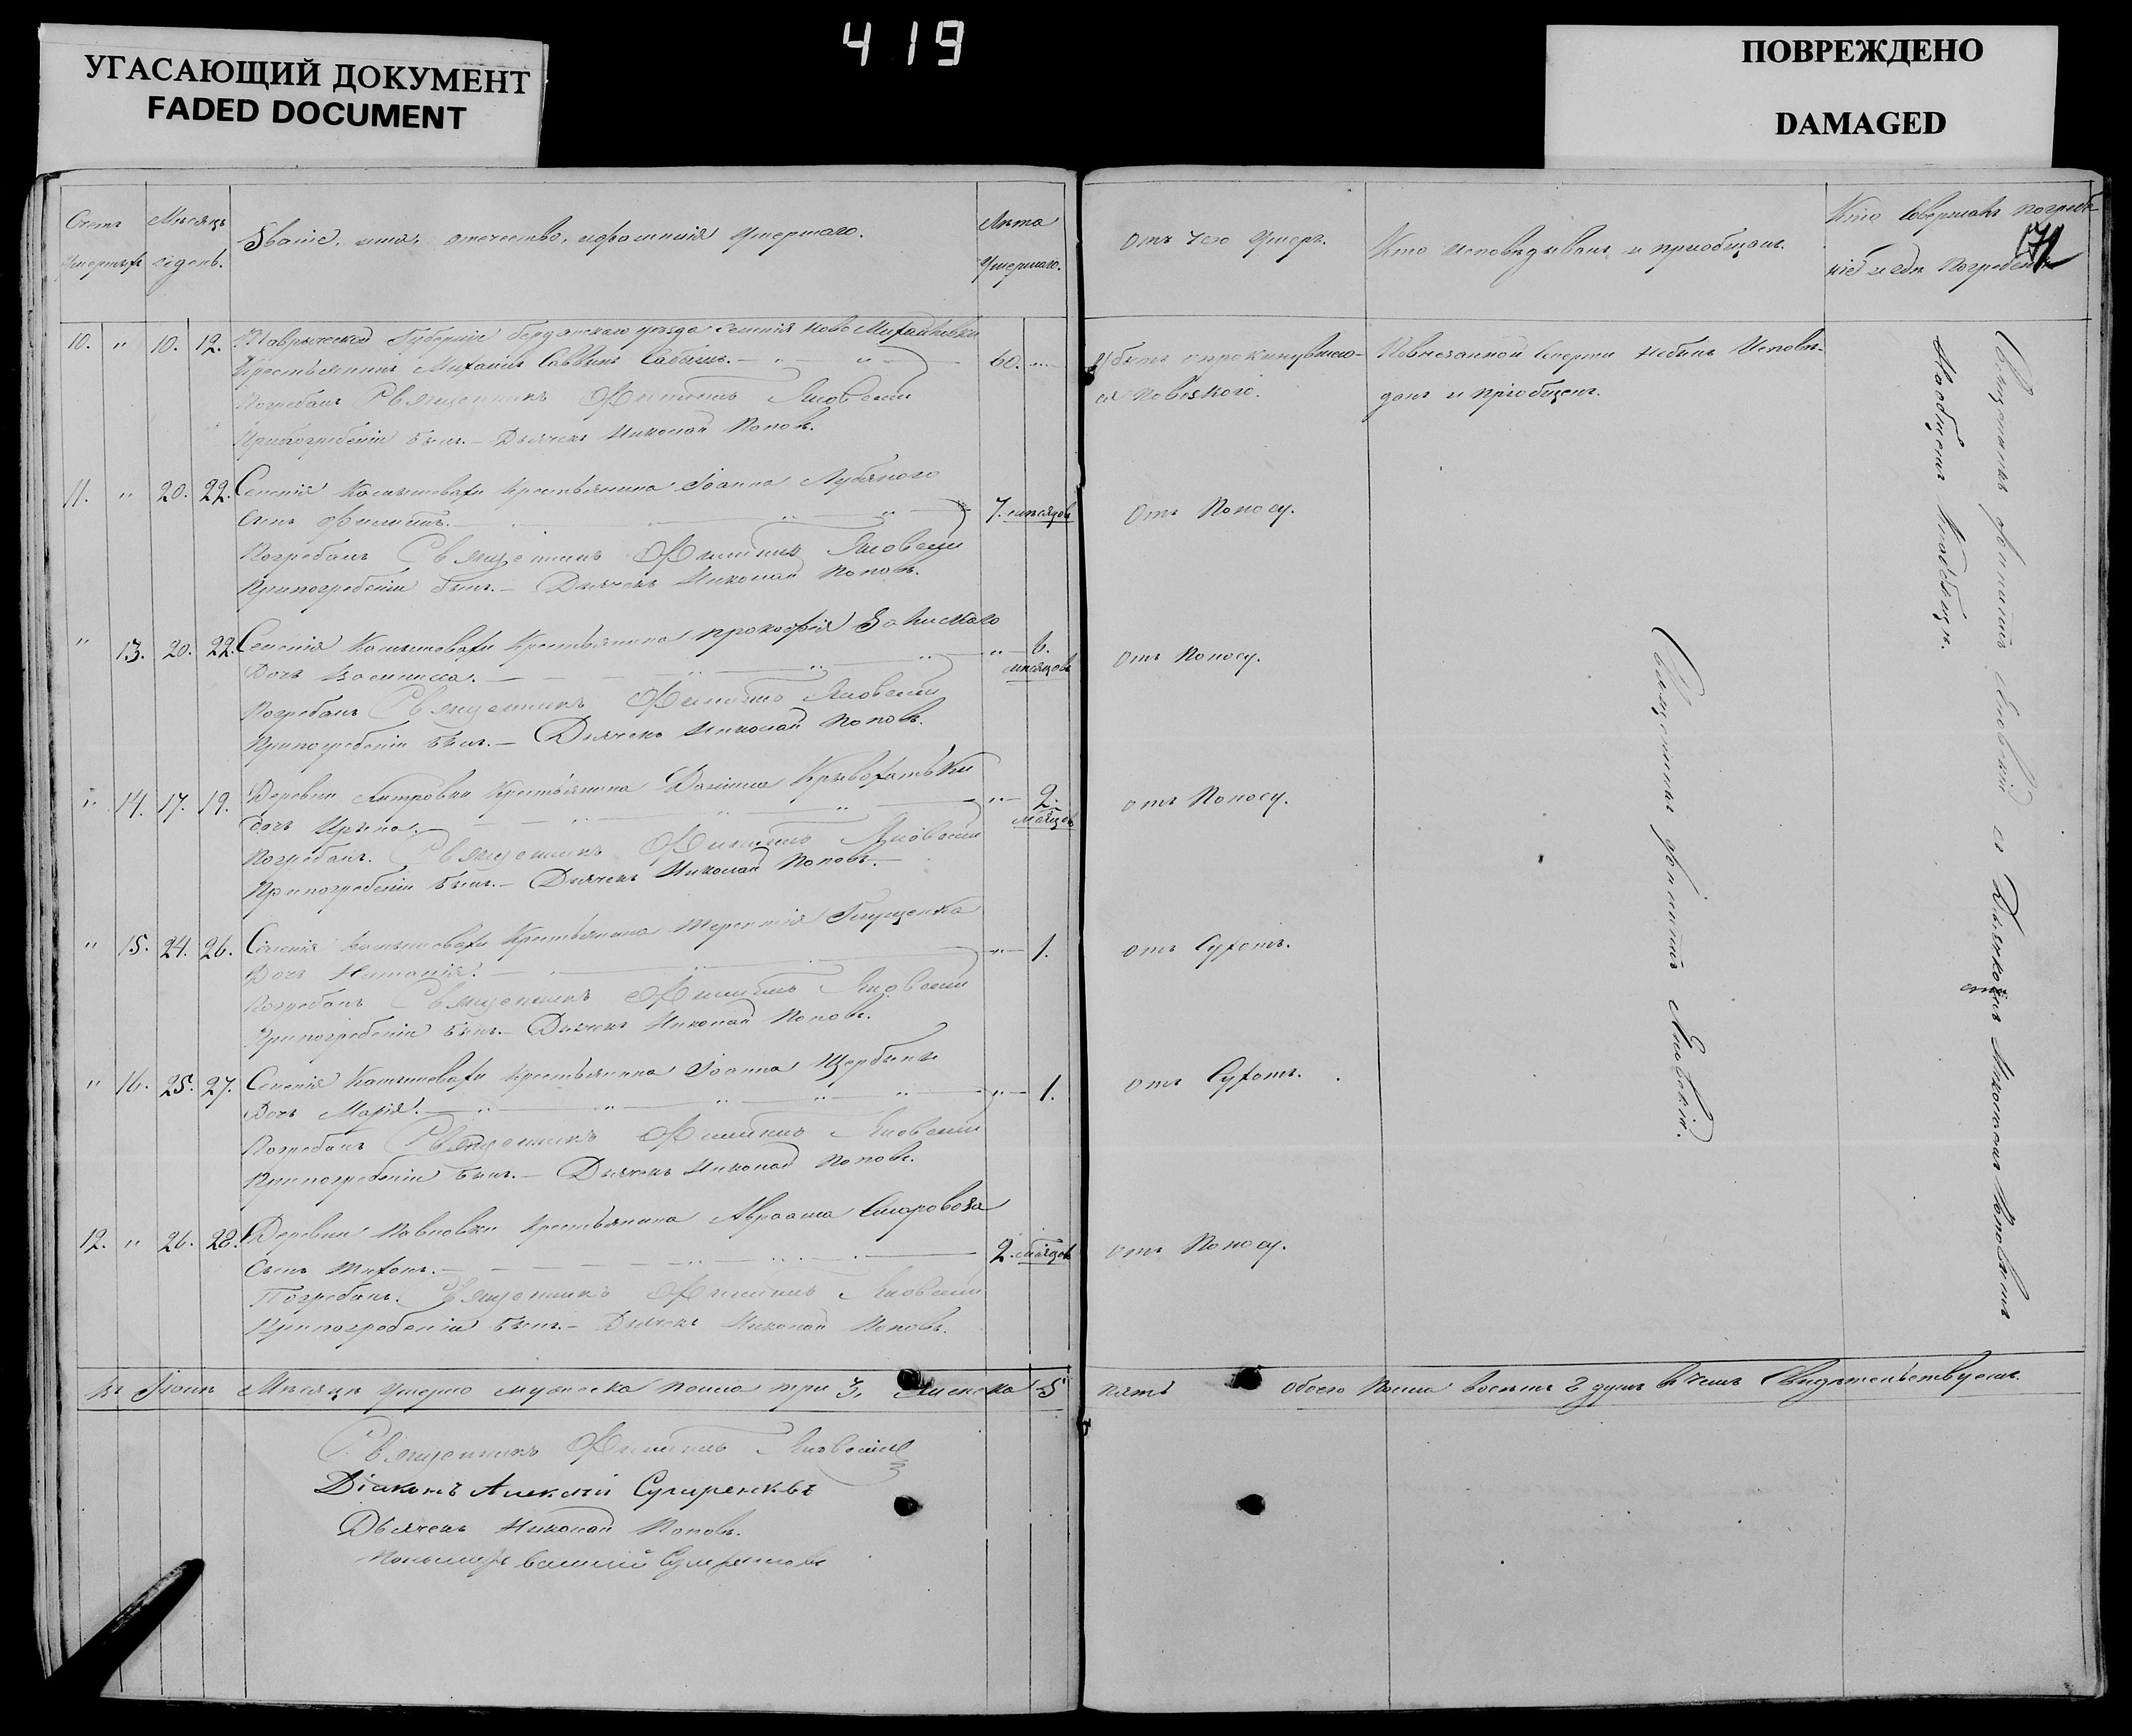 419
УГАСАЮЩИЙ ДОКУМЕНТ
FADED DOCUMENT
ПОВРЕЖДЕНО
DAMAGED
Счетъ умершихъ
Мѣсяцъ и день.
Званіе, имя, отечество, и фамилія умершаго.
Лѣта умершаго.
Отъ чего умеръ.
Кто исповѣдывалъ и пріобщалъ.
Кто совершалъ погребеніе и гдѣ погребенъ
71
10. " 10. 12. Таврической Губерніи бердянскаго уѣзда селенія Ново Михайловки
Крестьянинъ Михаилъ Саввинъ 60. Убитъ опрокинувшею- Повнезапной смерти небылъ Исповѣ-
ся повозкою. данъ и пріобщенъ.
Погребалъ Священникъ Филиппъ Яновскій
Припогребеніи былъ.- Дьячекъ Николай Поповъ.
11. " 20. 22. Селенія Камышевахи Крестьянина Іоанна Лубяного
Сынъ Филиппъ. 7. мѣсяцовъ Отъ Поносу.
Погребалъ Священникъ Филиппъ Яновскій
Припогребеніи былъ.- Дьячекъ Николай Поповъ.
" 13. 20. 22. Селенія Камышевахи Крестьянина Прокофія
Дочь Василисса. " 6. мѣсяцовъ Отъ Поносу.
Погребалъ Священникъ Филиппъ Яновскій
Припогребеніи былъ.- Дьячекъ Николай Поповъ.
" 14. 17. 19. Деревни Крестьянина Даніила
дочь Ирина. " 2. мѣсяцовъ отъ Поносу.
Погребалъ. Священникъ Филиппъ Яновскій
Припогребеніи былъ.- Дьячекъ Николай Поповъ.-
" 15. 24. 26. Селенія Камышевахи Крестьянина Терентія Глущенка
Дочь Наталія. " 1. отъ Сухотъ.
Погребалъ Священникъ Филиппъ Яновскій
Припогребеніи былъ.- Дьячекъ Николай Поповъ.
" 16. 25. 27. Селенія Камышевахи крестьянина Іоанна Щербины
Дочь Марія. " 1. отъ Сухотъ.
Погребалъ Священникъ Филиппъ Яновскій
Припогребеніи былъ.- Дьячекъ Николай Поповъ.
12. " 26. 28. Деревни Павловки крестьянина Авраама Скоровоза
Сынъ Тихонъ. 2. мѣсяцовъ отъ Поносу.
Погребалъ. Священникъ Филиппъ Яновскій
Припогребеніи былъ.- Дьячекъ Николай Поповъ.
Священникъ Филиппъ Яновскій.
Священникъ Филиппъ Яновскій съ Дьячкомъ Николаемъ Поповымъ
Наобщемъ Кладбищѣ.
Въ Іюнѣ Мѣсяцѣ умерло мужеска пола три 3, Женска 5 пять обоего пола восемь 8 душъ въ чемъ Свидѣтельствуемъ.
Священникъ Филиппъ Яновскій
Діаконъ Алексій
Дьячекъ Николай Поповъ.
Пономарь Василій